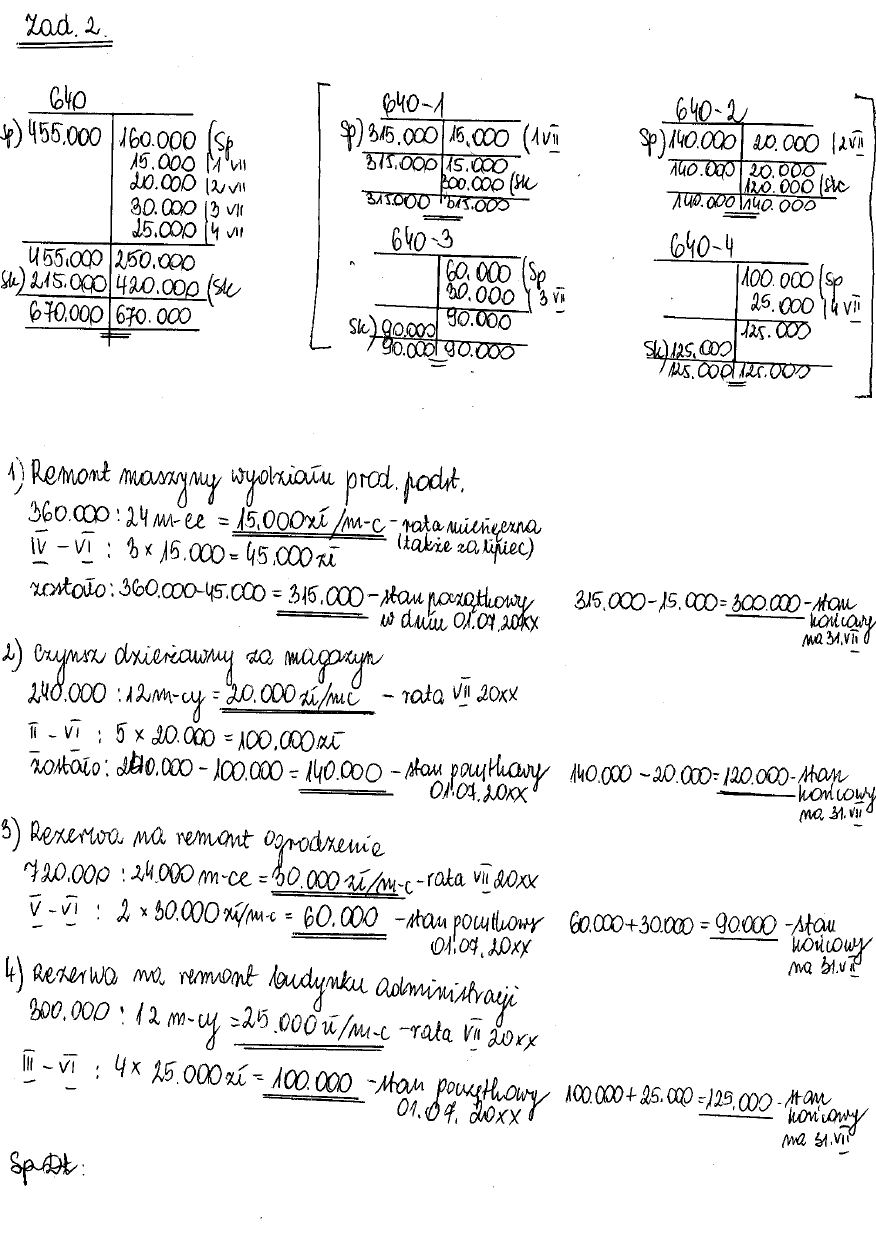 Zad. 2.
640
Sp) 455.000 | 160.000 (Sp
15.000 (1 VII
20.000 (2 VII
30.000 (3 VII
25.000 (4 VII
455.000 | 250.000
Sk) 215.000 | 420.000 (Sk
670.000 | 670.000
640-1
Sp) 315.000 | 15.000 (1 VII
315.000 | 15.000
300.000 (Sk
315.000 | 315.000
640-2
Sp) 140.000 | 20.000 (2 VII
140.000 | 20.000
120.000 (Sk
140.000 | 140.000
640-3
60.000 (Sp
30.000 (3 VII
90.000
Sk) 90.000
90.000 | 90.000
640-4
100.000 (Sp
25.000 (4 VII
125.000
Sk) 125.000
125.000 | 125.000
1) Remont maszyny wydziału prod. podst.
360.000 : 24 m-ce = 15.000 zł/m-c - rata miesięczna
(także za lipiec)
IV - VI : 3 × 15.000 = 45.000 zł
zostało: 360.000-45.000 = 315.000 - stan początkowy
w dniu 01.07.20xx
315.000 - 15.000 = 300.000 - stan
końcowy
na 31.VII
2) Czynsz dzierżawny za magazyn
240.000 : 12 m-cy = 20.000 zł/mc - rata VII 20xx
II - VI : 5 × 20.000 = 100.000 zł
zostało: 240.000 - 100.000 = 140.000 - stan początkowy
01.07.20xx
140.000 - 20.000 = 120.000 - stan
końcowy
na 31.VII
3) Rezerwa na remont ogrodzenie
720.000 : 24.000 m-ce = 30.000 zł/m-c - rata VII 20xx
V - VI : 2 × 30.000 zł/m-c = 60.000 - stan początkowy
01.07.20xx
60.000 + 30.000 = 90.000 - stan
końcowy
na 31.VII
4) Rezerwa na remont budynku administracji
300.000 : 12 m-cy = 25.000 zł/m-c - rata VII 20xx
III - VI : 4 × 25.000 zł = 100.000 - stan początkowy
01.07.20xx
100.000 + 25.000 = 125.000 - stan
końcowy
na 31.VII
Sp Dt: